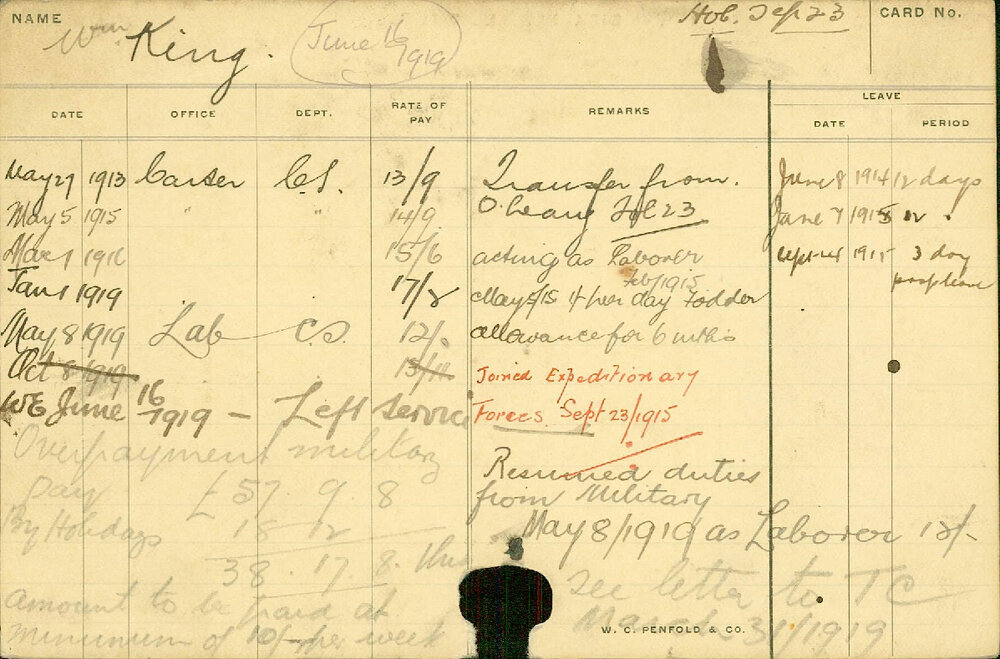 NAME Wm King. June 16 1919 Hob. Sep 23 CARD No.
DATE OFFICE DEPT. RATE OF PAY REMARKS LEAVE
DATE PERIOD
May 27 1913 Carter C.S. 13/9 Transfer from. June 8 1914 12 days
May 5 1915 " " 14/9 June 7 1915 12 "
Mar 1 1916 15/6 acting as Laborer Sept 24 1915 3 day
Feb/1915
Jan 1 1919 17/2 May 5/15 4/- per day Fodder
May 8 1919 Lab CS. 12/. allowance for 6 mths
Oct 8 1919 13/11 Joined Expeditionary
WE June 16 1919 - Left service Forces Sept 23/1915
Overpayment military Resumed duties
pay £57. 9. 8 from Military
By Holidays 18 12 May 8/1919 as Laborer 12/-
38. 17. 8. thus see letter to TC
amount to be paid at March 31/1919
minimum of 10/- per week W. C. PENFOLD & CO.